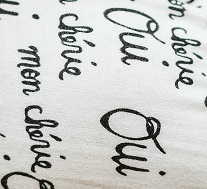 mon chérie
Oui
chérie
mon chérie
Oui